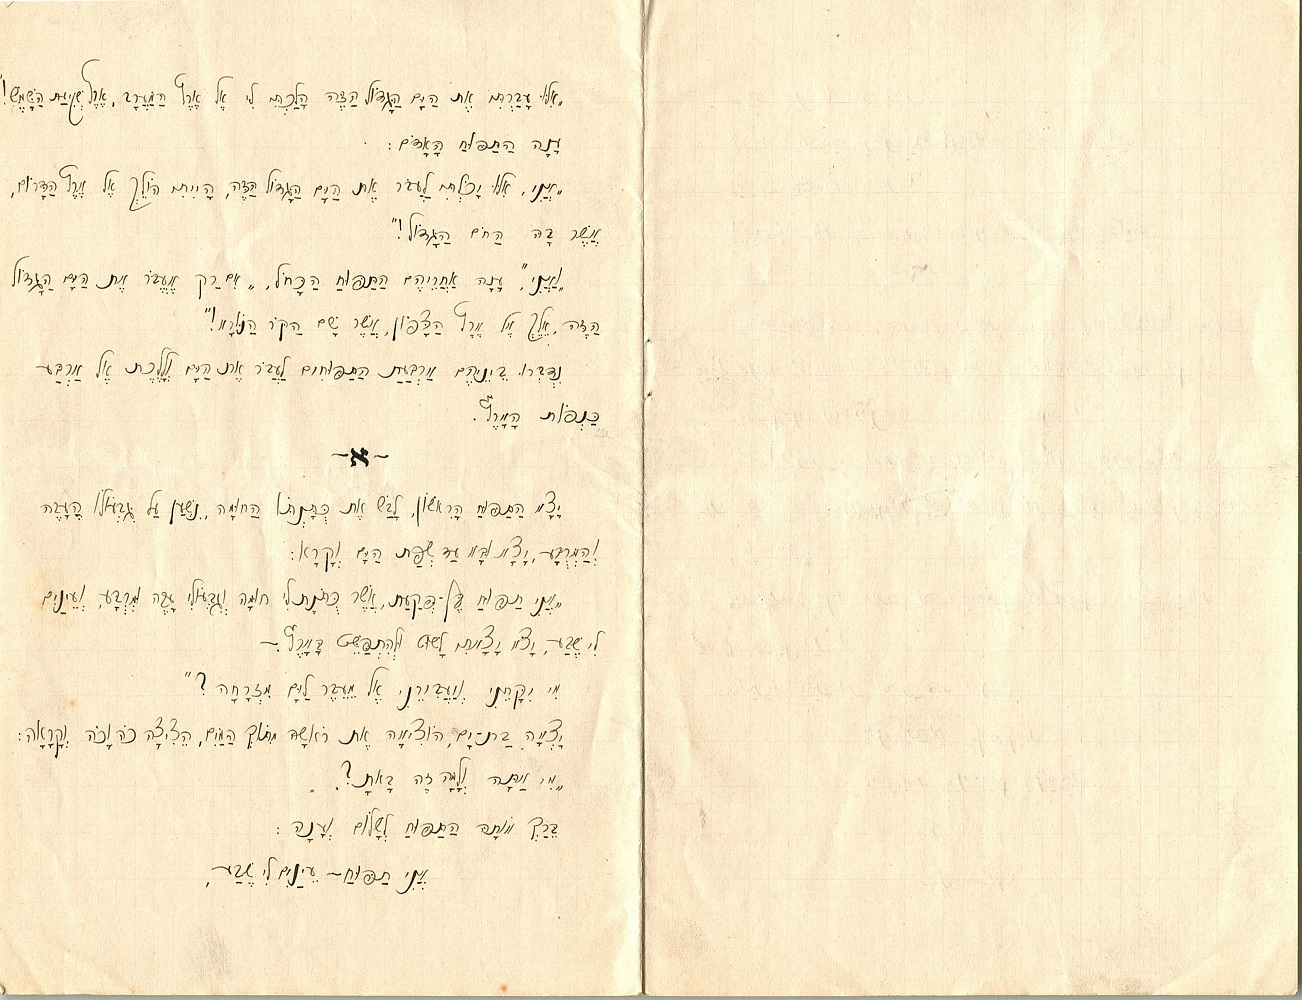 „אִלּוּ עָבַרְתִּי אֶת הַיָּם הַגָּדוֹל הַזֶּה הָלַכְתִּי לִי אֶל אֶרֶץ הַמַּעֲרָב, אֶרֶץ שְׁקִיעַת הַשֶּׁמֶשׁ!"
עָנָה הַתַּפּוּחַ הָאָדֹם:
„אֲנִי, אִלּוּ יָכֹלְתִּי לַעֲבֹר אֶת הַיָּם הַגָּדוֹל הַזֶּה, הָיִיתִי הוֹלֵךְ אֶל אֶרֶץ הַדָּרוֹם,
אֲשֶׁר בָּהּ הַחֹם הַגָּדוֹל!"
„וַאֲנִי", עָנָה אַחֲרֵיהֶם הַתַּפּוּחַ הַכָּחֹל, „אִם רַק אֶעֱבֹר אֶת הַיָּם הַגָּדוֹל
הַזֶּה, אֵלֵךְ אֶל אֶרֶץ הַצָּפוֹן, אֲשֶׁר שָׁם הַקֹּר הַנּוֹרָא!"
נִדְבְּרוּ בֵּינֵיהֶם אַרְבַּעַת הַתַּפּוּחִים לַעֲבֹר אֶת הַיָּם וְלָלֶכֶת אֶל אַרְבַּע
כַּנְפוֹת הָאָרֶץ.
~א~
יָצָא הַתַּפּוּחַ הָרִאשׁוֹן, לָבַשׁ אֶת כְּתָנְתּוֹ הַחוּמָה, נִשְׁעַן עַל גִּבְעוֹלוֹ הֶעָבֶה
וְהַמְרֻבָּע, יָצָא וּבָא עַד שְׂפַת הַיָּם וְקָרָא:
„אֲנִי תַּפּוּחַ בֶּן-פְּקַעַת, אֲשֶׁר כְּתֹנֶת לִי חוּמָה וְגִבְעוֹלִי עָבֶה מְרֻבָּע, וְעֵינַיִם
לִי שֶׁבַע, יָצֹא יָצָאתִי לָשׁוּט וּלְהִתְפַּשֵּׁט בָּאָרֶץ. –
מִי יִקָּחֵנִי וְיַעֲבִירֵנִי אֶל מֵעֵבֶר לַיָּם מִזְרָחָה?"
יָצְאָה בַּת-יָם, הוֹצִיאָה אֶת רֹאשָׁהּ מִתּוֹךְ הַמַּיִם, הֵצִיצָה כֹּה וָכֹה וְקָרְאָה:
„מִי אַתָּה וְלָמָּה זֶה בָּאתָ?
בֵּרַךְ אוֹתָהּ הַתַּפּוּחַ לְשָׁלוֹם וְעָנָה:
אֲנִי תַּפּוּחַ – עֵינַיִם לִי שֶׁבַע,